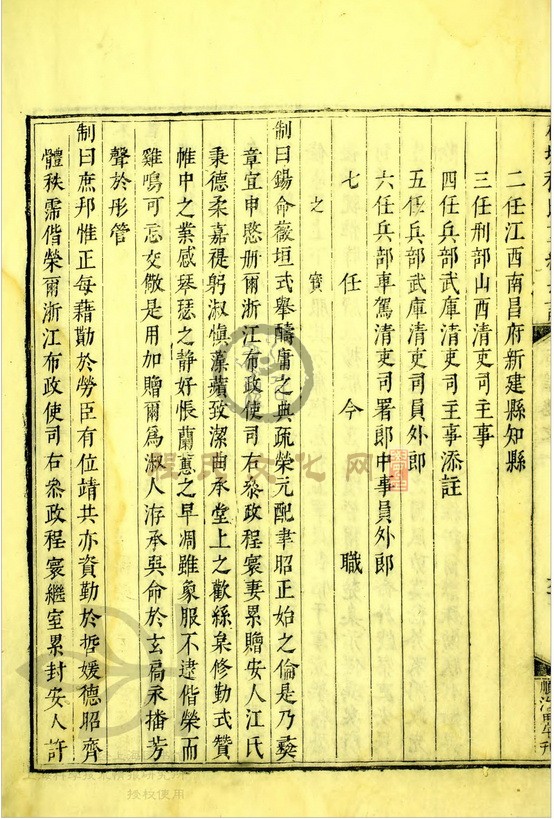 二任江西南昌府新建縣知縣
三任刑部山西清吏司主事
四任兵部武庫清吏司主事添註
五任兵部武庫清吏司員外郎
六任兵部車駕清吏司署郎中事員外郎
七任今職
之寶
制曰錫命薇垣式舉疇庸之典疏榮元配聿昭正始之倫是乃彞
章宜申愍册爾浙江布政使司右叅政程寰妻累贈安人江氏
秉德柔嘉禔躬淑慎蘋蘩致潔由承堂上之歡絲枲修勤式贊
帷中之業感琴瑟之靜好悵蘭蕙之早凋雖象服不逮偕榮而
雞鳴可忘交儆是用加贈爾爲淑人洊承奭命於玄扃永播芳
聲於彤管
制曰庶邦惟正每藉勤於勞臣有位靖共亦資勤於哲媛德昭齊
體秩需偕榮爾浙江布政使司右叅政程寰繼室累封安人許
程氏文化网
授校使用